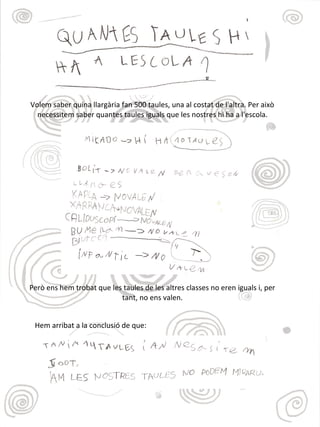 QUANTES TAULES HI
HA A LESCOLA?
Volem saber quina llargària fan 500 taules, una al costat de l'altra. Per això
necessitem saber quantes taules iguals que les nostres hi ha a l'escola.
MICADO → HI HA 10 TAULES
BOLIT → NO VALEN
XARRANCA → NOVALEN
CALIDUSCOPI → NOVALEN
BUMERAM → NO VALEN
4 T.
INFANTIL → NO
VALEN
Però ens hem trobat que les taules de les altres classes no eren iguals i, per
tant, no ens valen.
Hem arribat a la conclusió de que:
TANIM 14 TAULES I AN NESESITEM
500T.
AM LES NOSTRES TAULES NO PODEM MIRARLU.